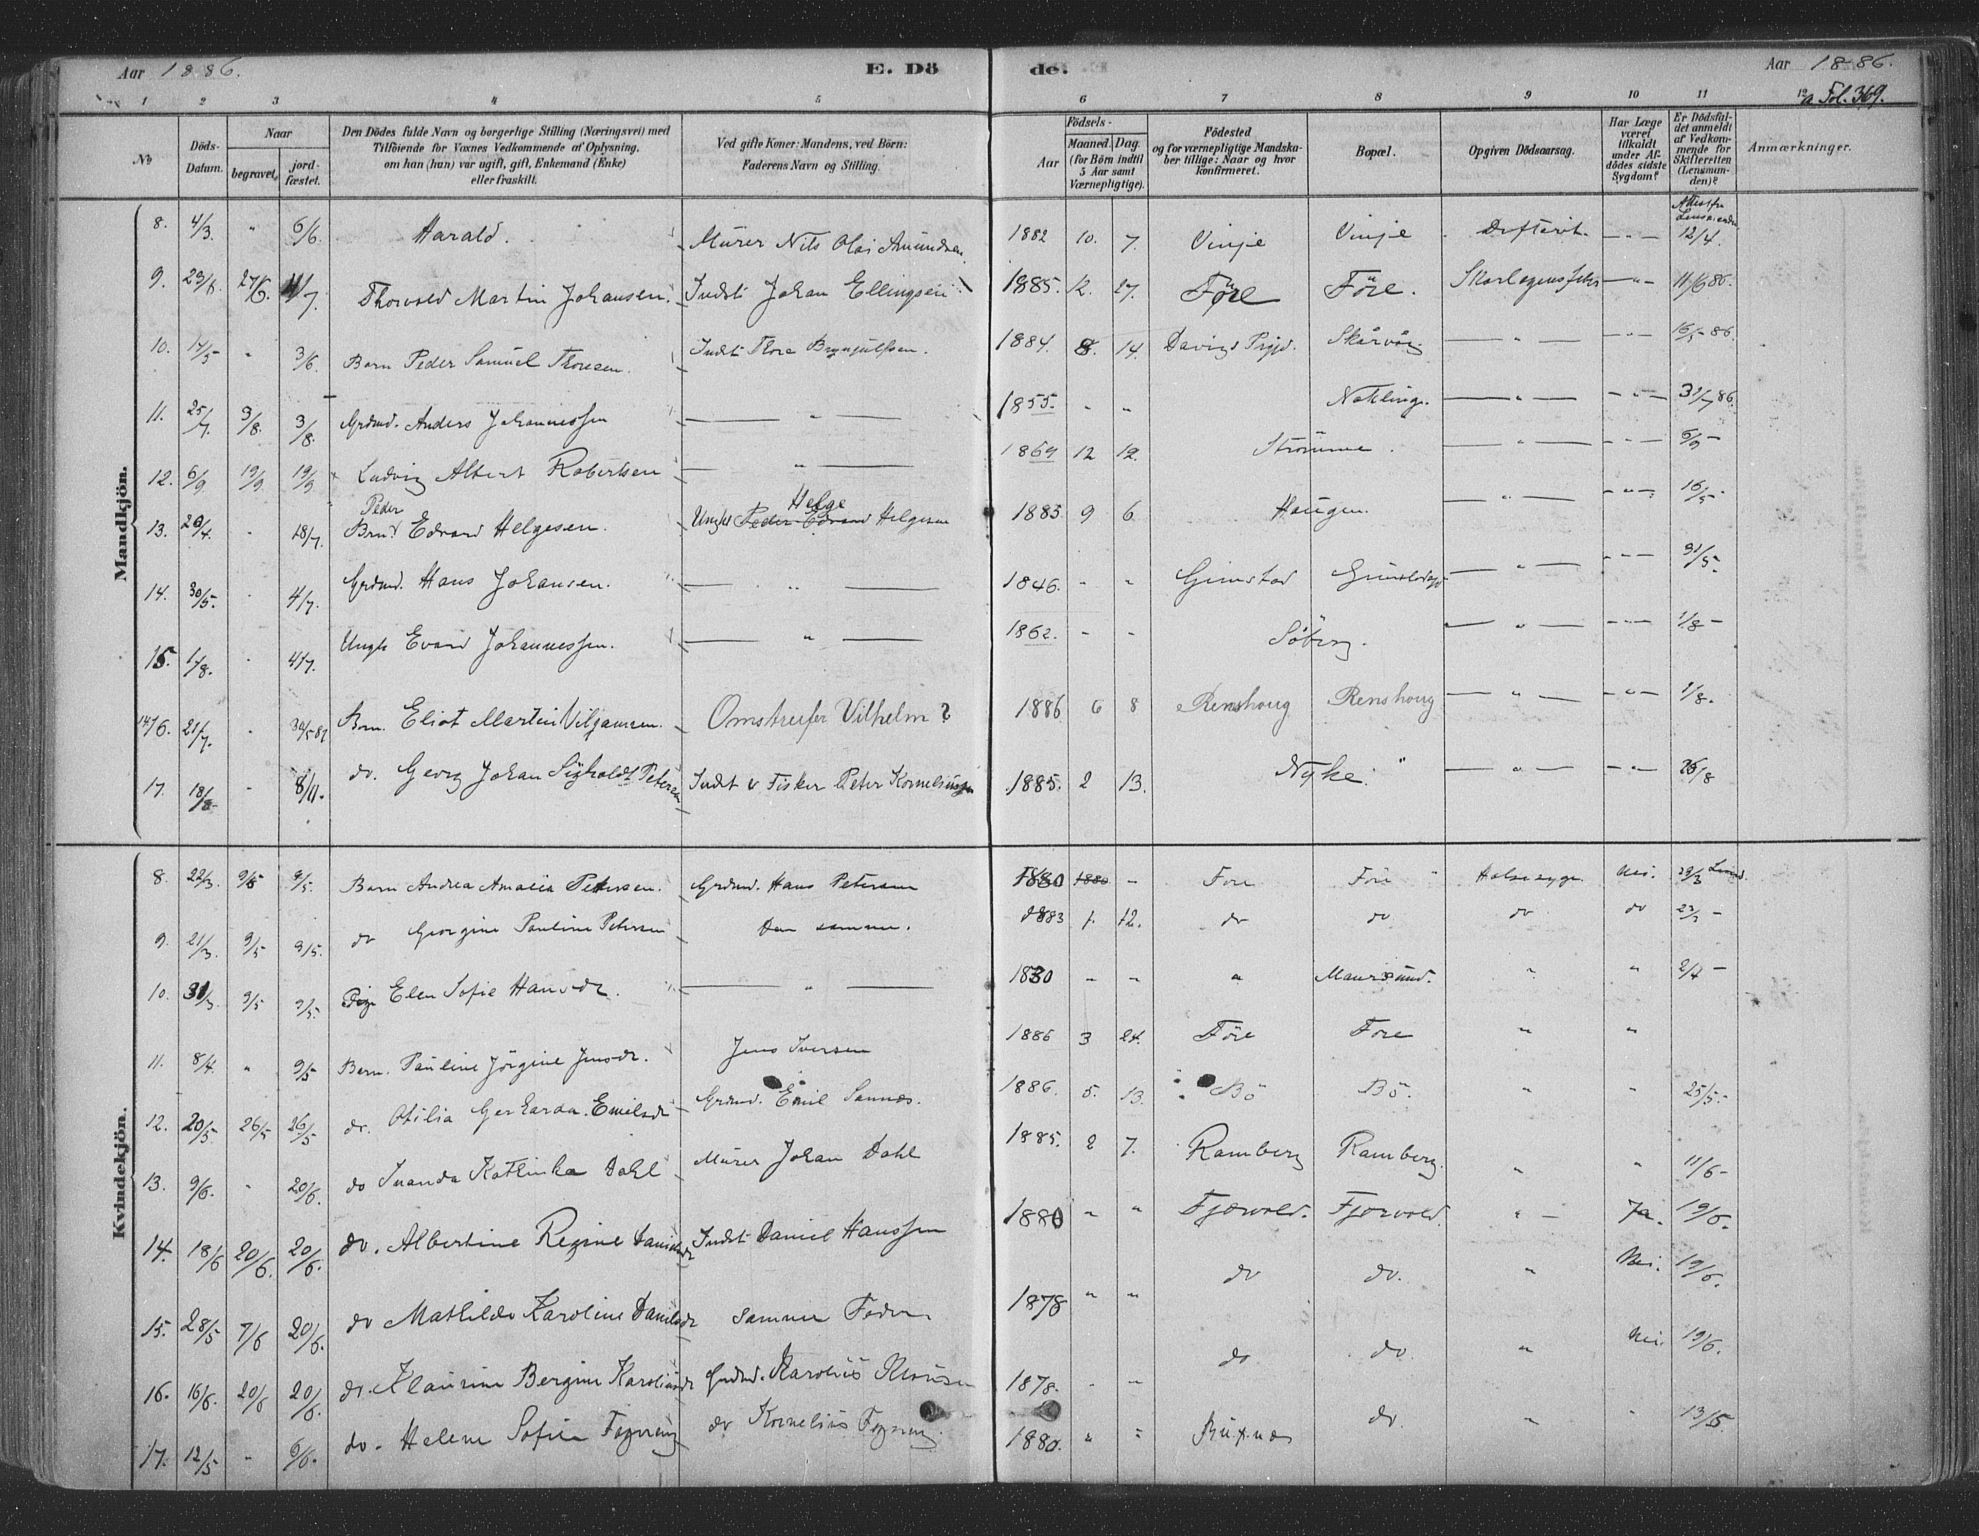 Aar 1886.
E. Dö
de.
Aar 1886.
Fol. 369.
1 2 3 4 5 6 7 8 9 10 11 12
No
Döds-Datum.
Naar
begravet,
jordfæstet.
Den Dödes fulde Navn og borgerlige Stilling (Næringsvei) med Tilföiende for Voxnes Vedkommende af Oplysning, om han (hun) var ugift, gift, Enkemand (Enke) eller fraskilt.
Ved gifte Koner: Mandens, ved Börn: Faderens Navn og Stilling.
Födsels-
Aar
Maaned. Dag.
(for Börn indtil 5 Aar samt Værnepligtige).
Födested og for værnepligtige Mandskaber tillige: Naar og hvor konfirmeret.
Bopæl.
Opgiven Dödsaarsag.
Har Læge været tilkaldt under Afdödes sidste Sygdom?
Er Dödsfaldet anmeldt af Vedkommende for Skifteretten (Lensmanden)?
Anmærkninger.
Mandkjön.
8. 4/3. " 6/6. Harald. Murer Nils Olai Amundsen 1882 10. 7. Vinje Vinje Difterit. — " — 12/4.
9. 23/6. 27/6. 11/7. Thorvald Martin Johansen. Indst. Johan Ellingsen 1885. 12. 27. Före Före. Skarlagensfeber — " — 11/6 86.
10. 14/5 " 3/6. Barn Peder Samuel Thoresen. Indst. Thore Brynjulfsen. 1884. 8. 14. Skårvåg — " — — " — 15/5 86.
11. 25/7. 3/8. 3/8. Grdmd. Anders Johannessen — " — 1855. " " Nakling. — " — — " — 31/7 86.
12. 6/9. 19/9. 19/9 Ludvig Albert Robertsen — " — 1869 12 12. Strömme. — " — — " — 6/9 —
13. 20/4. " 18/7. Brn. Peder Edvard Helgesen. Ungk. Helge Helgesen 1883 9 6 Haugen. — " — — " — 16/5.
14. 30/5. " 4/7. Grdmd. Hans Johansen. — " — 1846. " " Gimstad — " — — " — 31/5.
15. 1/8. " 4/7. Ungk Evard Johannessen. — " — 1862. - - Söberg. — " — — " — 1/8 —
16. 21/7. " 30/5 87 Barn. Eliot Martin Viljamsen. Omstreifer Vilhelm ? 1886 6 8 Renshoug Renshoug — " — — " — 1/8.
17. 18/8. " 8/11. do. Georg Johan Sigholdt Petersen Indst & Fisker Peter Korneliussen 1885. 2 13. Nyke. " — " — — " — 25/8
Kvindekjön.
8. 22/3. 9/5 9/5. Barn Andrea Amalia Petersen. Grdmd. Hans Petersen 1880 1880 - Fore Före Halssyge Nei. 23/3 Lensmd.
9. 21/3. 9/5 9/5. do Georgine Pauline Petersen Den samme. 1883 1. 12. do do do do 23/3 —
10. 31/3. 9/5 9/5. Pige Elen Sofie Hansdr. — " — 1830 - - " Maursund. " " 2/4 —
11. 8/4. " 9/5 Barn. Pauline Jörgine Jensdr. Jens Iversen 1886 3 24. Före Fore " "
12. 20/5. 26/5 26/5 do. Otilia Gerharda Emilsdr Grdmd. Emil Sannes. 1886. 5. 13. Bö Bö. " " 25/5.
13. 9/6. " 20/6. do Ivanda Kathinka Dahl Murer Johan Dahl 1885. 2 7. Ramberg Ramberg. " " 11/6 —
14. 18/6 20/6. 20/6. do. Albertine Regine Danielsdr Indst Daniel Hanssen 1880 " " Fjærvold. Fjærvold. " — Ja. 19/6.
15. 28/5 7/6 20/6. do Mathilde Karoline Danielsdr samme Fader 1878 " " do do. " Nei. 19/6.
16. 16/6. 20/6 20/6. do. Klausine Bergine Karoliusdr Grdmd. Karolius Klausen 1878. - " do. do. " Nei 19/6.
17. 12/5 " 6/6. do. Helene Sofie do Kornelius 1880. " " Buxnes do. " " 13/5